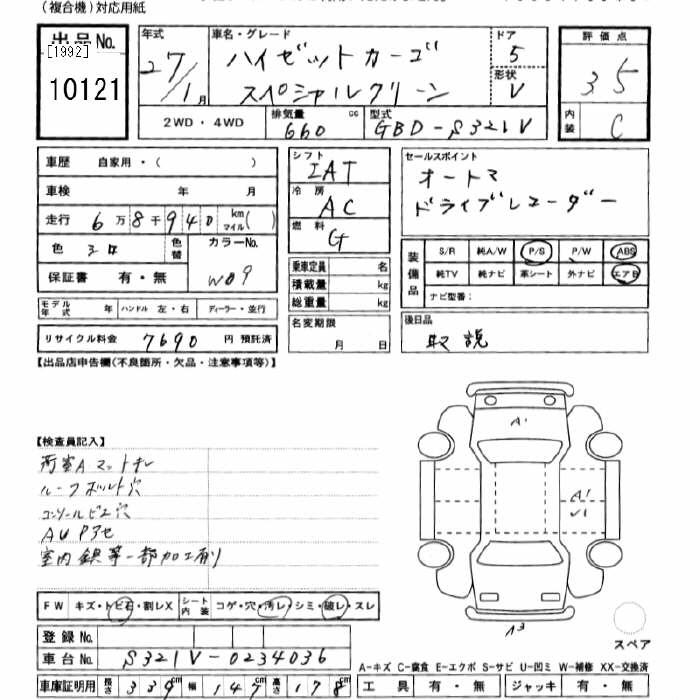 (複合機)対応用紙
出品No.
[1992]
10121
年式 27/1月
車名・グレード ハイゼットカーゴ スペシャルクリーン
ドア 5
形状 V
2WD・4WD
排気量 660 cc
型式 GBD-S321V
評価点 3.5
内装 C
車歴 自家用・( )
車検 年 月
走行 6万8千940 km マイル( )
色 シロ 色替
カラーNo. W09
保証書 有・無
モデル年式 年 ハンドル 左・右 ディーラー・並行
リサイクル料金 7690 円 預託済
シフト IAT
冷房 AC
燃料 G
乗車定員 名
積載量 kg
総重量 kg
名変期限 月 日
セールスポイント
オートマ
ドライブレコーダー
装備品
S/R 純A/W P/S P/W ABS
純TV 純ナビ 革シート 外ナビ エアB
ナビ型番:
後日品
取説
【出品店申告欄(不良箇所・欠品・注意事項等)】
【検査員記入】
荷室A マットキレ
ルーフボルト穴
コンソールビス穴
室内 錆等一部加工有り
FW キズ・トビ石・割レX
シート内装 コゲ・穴・汚レ・シミ・破レ・スレ
登録No.
車台No. S321V-0234036
車庫証明用 長さ 339cm 幅 147cm 高さ 178cm
A1
A1
A3
スペア
A-キズ C-腐食 E-エクボ S-サビ U-凹ミ W-補修 XX-交換済
工具 有・無 ジャッキ 有・無